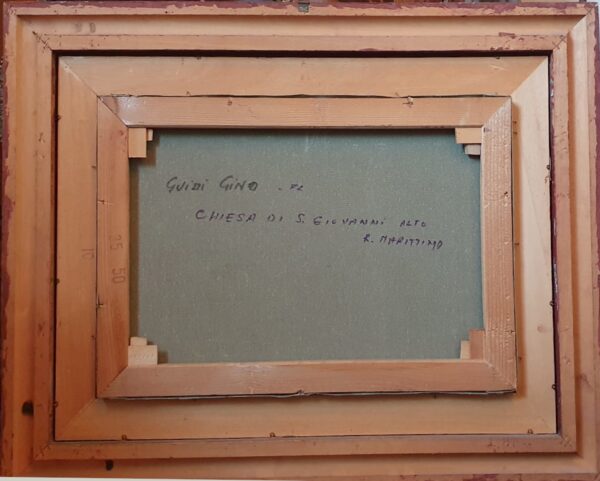 GUIDI GINO - FL
CHIESA DI S. GIOVANNI ALTO
R. MARITTIMO
35 50
10